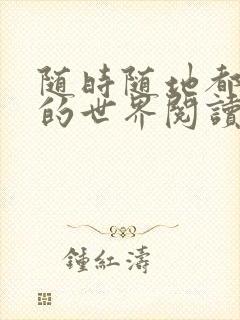 随時随地都
的世界閱讀
鍾紅濤